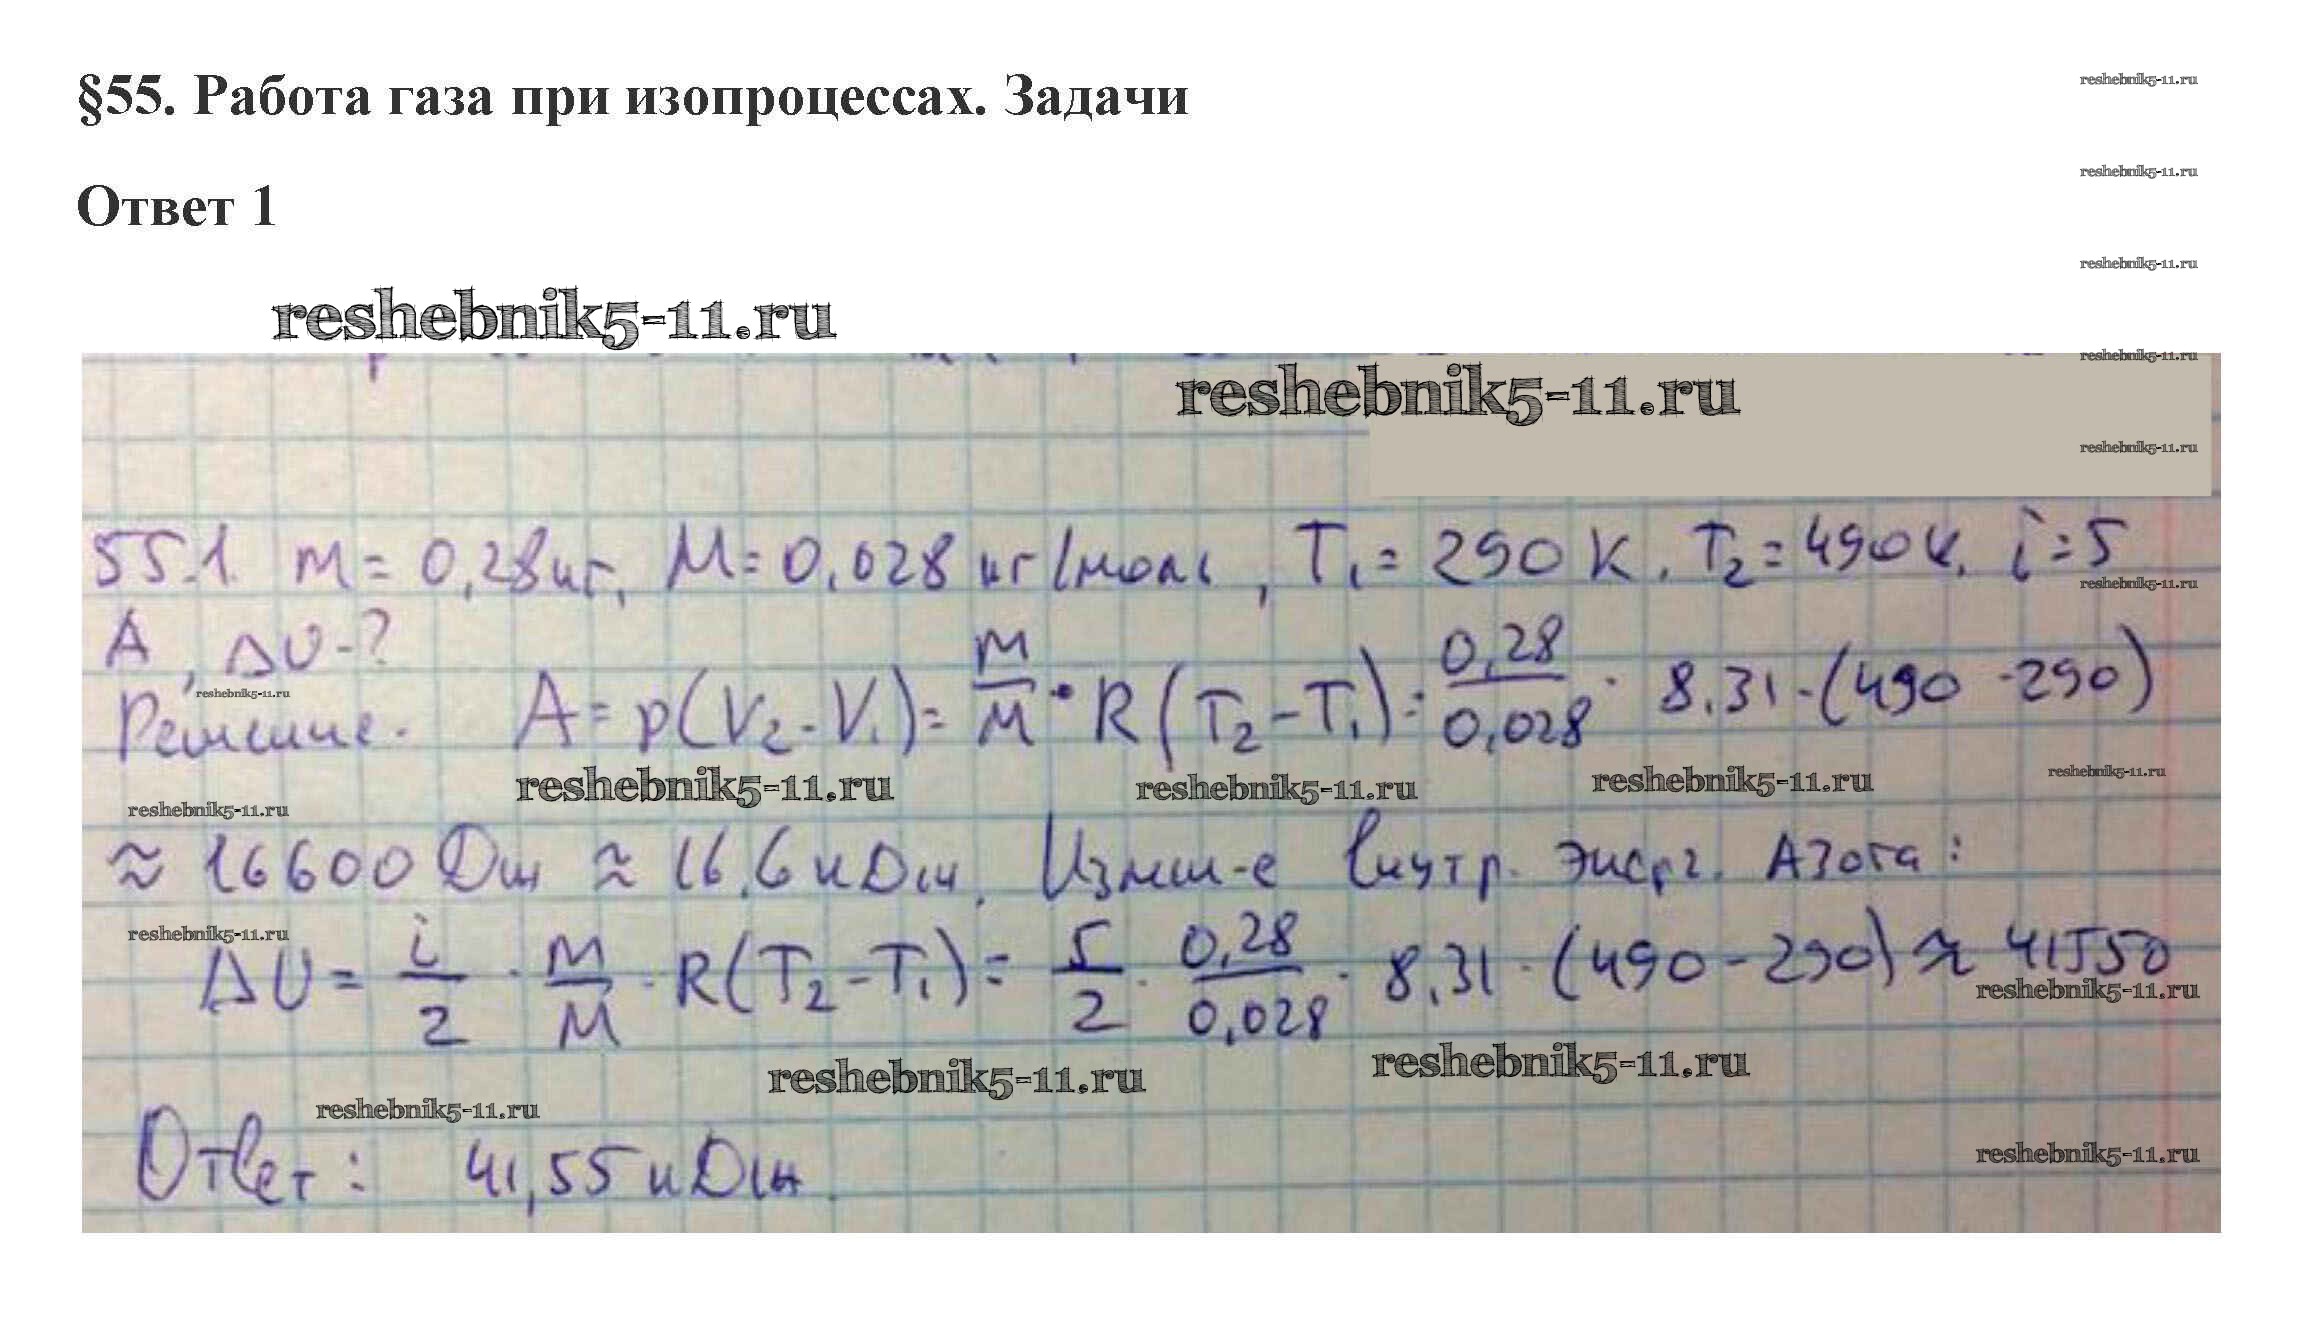 §55. Работа газа при изопроцессах. Задачи
reshebnik5-11.ru
reshebnik5-11.ru
Ответ 1
reshebnik5-11.ru
reshebnik5-11.ru
reshebnik5-11.ru
reshebnik5-11.ru
reshebnik5-11.ru
55.1. m = 0,28 кг, M = 0,028 кг/моль, T₁ = 290 K, T₂ = 490 K, i = 5
reshebnik5-11.ru
A, ΔU - ?
reshebnik5-11.ru
Решение. A = p(V₂ - V₁) = m/M · R(T₂ - T₁) = 0,28/0,028 · 8,31 · (490 - 290)
reshebnik5-11.ru reshebnik5-11.ru reshebnik5-11.ru reshebnik5-11.ru
reshebnik5-11.ru
≈ 16600 Дж ≈ 16,6 кДж. Измен-е внутр. энерг. Азота:
reshebnik5-11.ru
ΔU = i/2 · m/M · R(T₂ - T₁) = 5/2 · 0,28/0,028 · 8,31 · (490 - 290) ≈ 41550
reshebnik5-11.ru
reshebnik5-11.ru reshebnik5-11.ru
reshebnik5-11.ru
Ответ: 41,55 кДж.
reshebnik5-11.ru